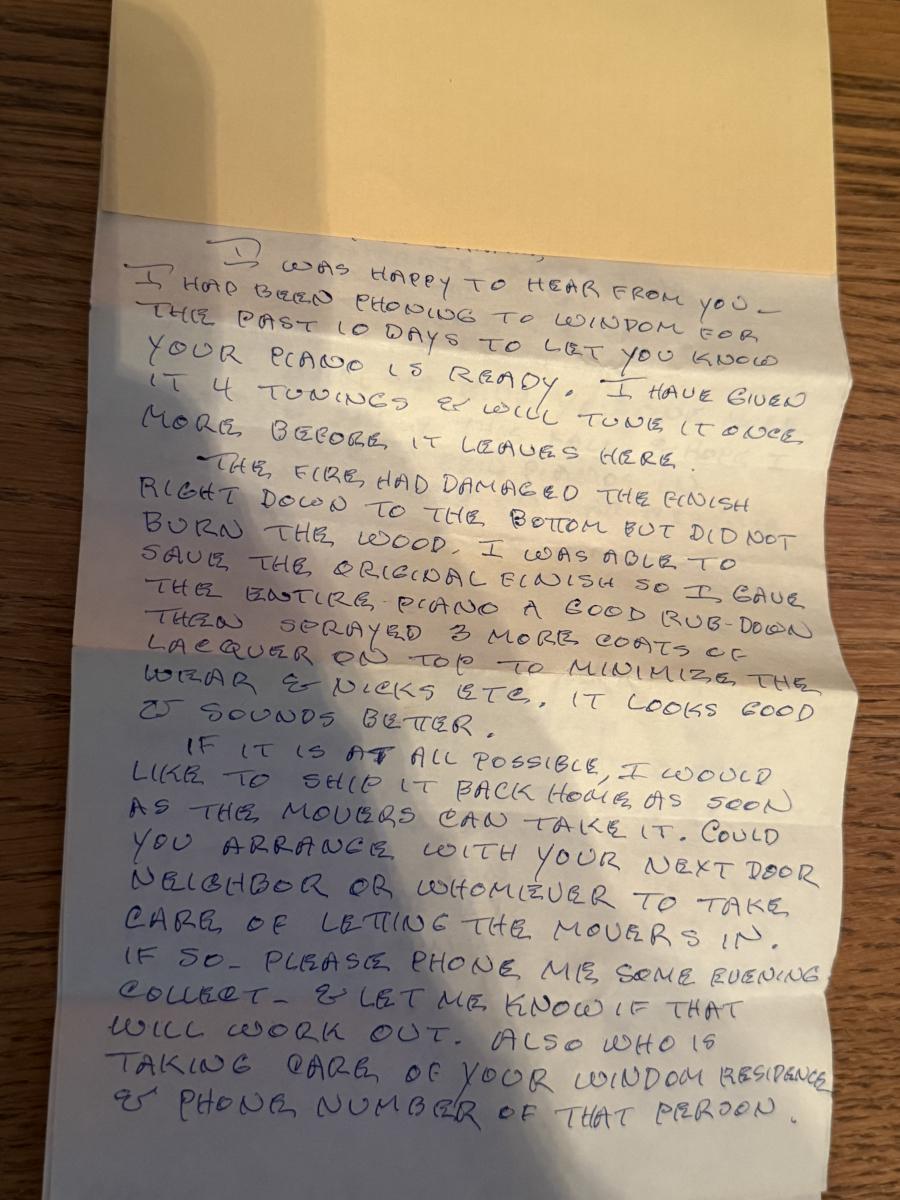 I WAS HAPPY TO HEAR FROM YOU -
I HAD BEEN PHONING TO WINDOM FOR
THE PAST 10 DAYS TO LET YOU KNOW
YOUR PIANO IS READY. I HAVE GIVEN
IT 4 TUNINGS & WILL TUNE IT ONCE
MORE BEFORE IT LEAVES HERE.
THE FIRE HAD DAMAGED THE FINISH
RIGHT DOWN TO THE BOTTOM BUT DID NOT
BURN THE WOOD. I WAS ABLE TO
SAVE THE ORIGINAL FINISH SO I GAVE
THE ENTIRE PIANO A GOOD RUB-DOWN
THEN SPRAYED 3 MORE COATS OF
LACQUER ON TOP TO MINIMIZE THE
WEAR & NICKS ETC. IT LOOKS GOOD
& SOUNDS BETTER.
IF IT IS AT ALL POSSIBLE, I WOULD
LIKE TO SHIP IT BACK HOME AS SOON
AS THE MOVERS CAN TAKE IT. COULD
YOU ARRANGE WITH YOUR NEXT DOOR
NEIGHBOR OR WHOMIEVER TO TAKE
CARE OF LETTING THE MOVERS IN.
IF SO - PLEASE PHONE ME SOME EVENING
COLLECT - & LET ME KNOW IF THAT
WILL WORK OUT. ALSO WHO IS
TAKING CARE OF YOUR WINDOM RESIDENCE
& PHONE NUMBER OF THAT PERSON.